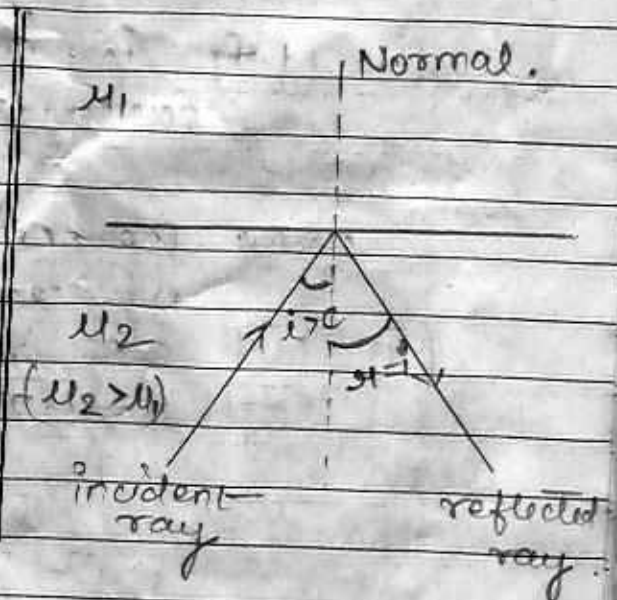 Normal.
μ1
i>c
μ2
r=i
(μ2>μ1)
incident
ray
reflected
ray.